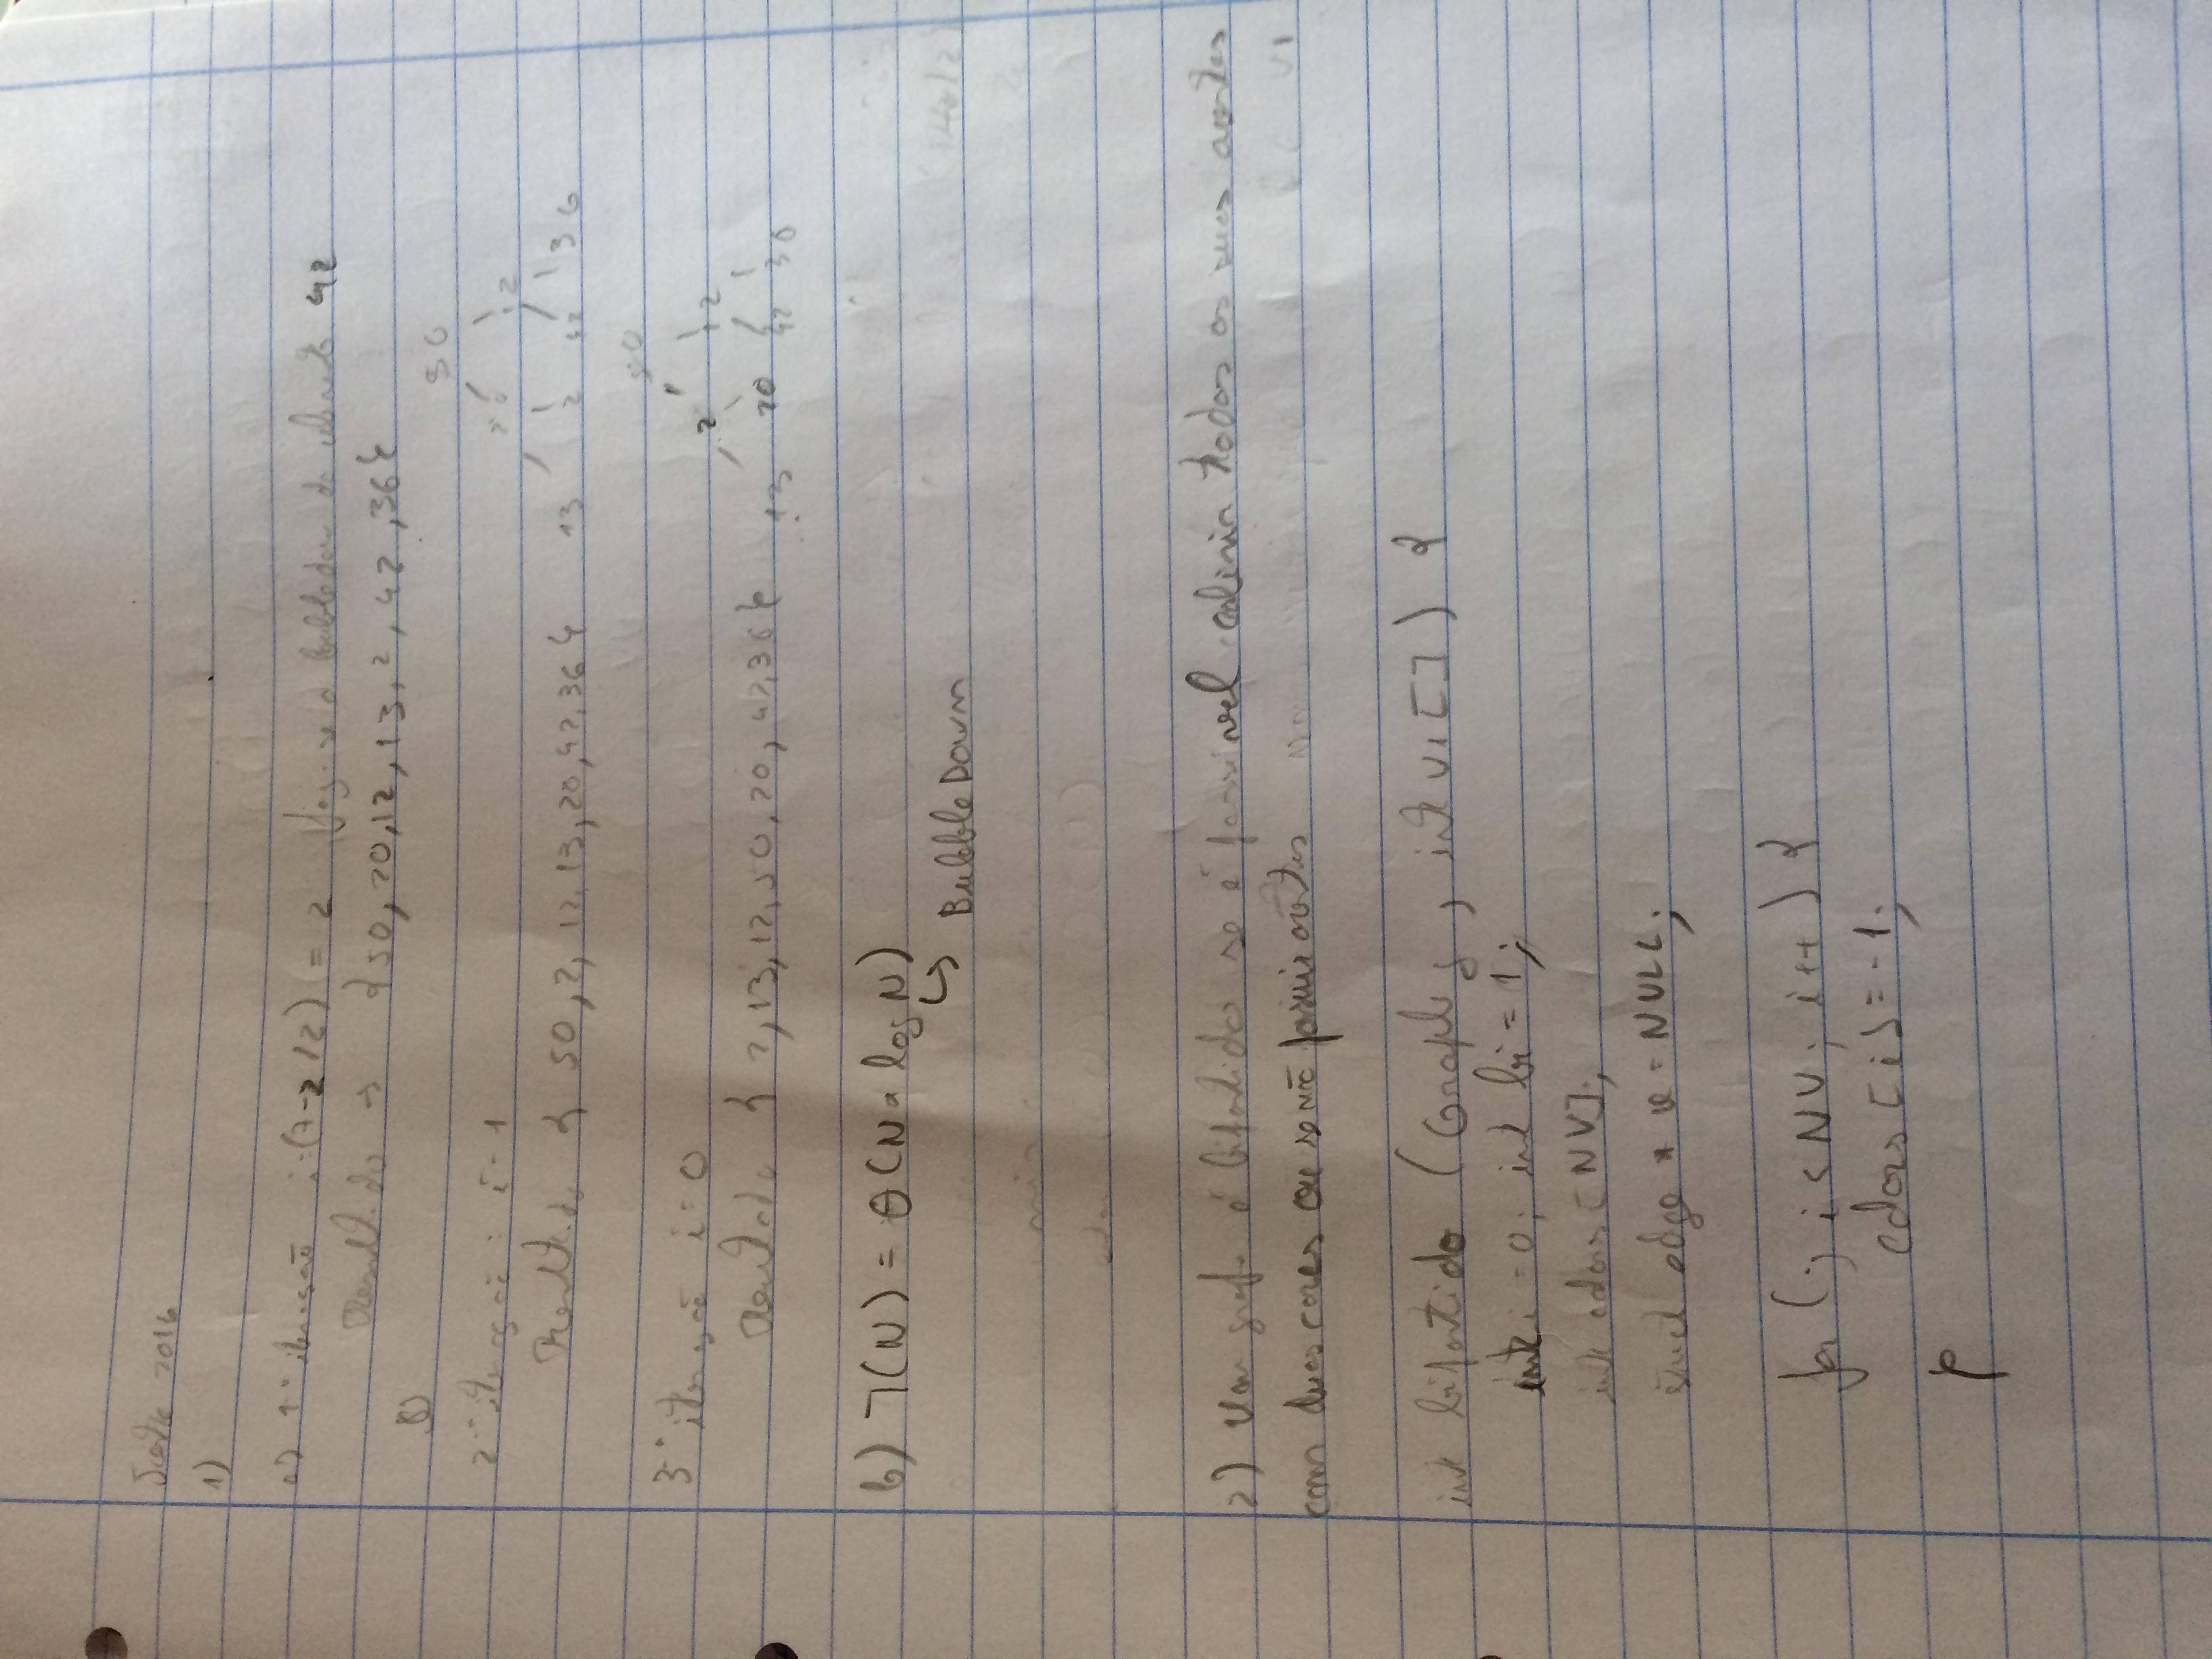 Teste 2016
1)
a) 1ª iteração i=(7-2/2) = 2 faz-se o bubbledown do elemento 42
Resultado → {50, 20, 12, 13, 2, 42, 36}
2ª iteração: i=1
Resultado { 50, 2, 12, 13, 20, 42, 36 }
50
20 12
13 2 42 36
3ª iteração i=0
Resultado { 2, 13, 12, 50, 20, 42, 36 }
50
2 12
13 20 42 36
b) T(N) = θ(N * log N)
↳ BubbleDown
2) Um grafo é bipartido se é possivel colorir todos os suas arestas
com duas cores ou se não possuir
int bipartido (Graph g, int v1[]) {
int i = 0; int bi = 1;
int colors [NV];
struct edge * v = NULL;
for (; i < NV; i++) {
colors [i] = -1;
}